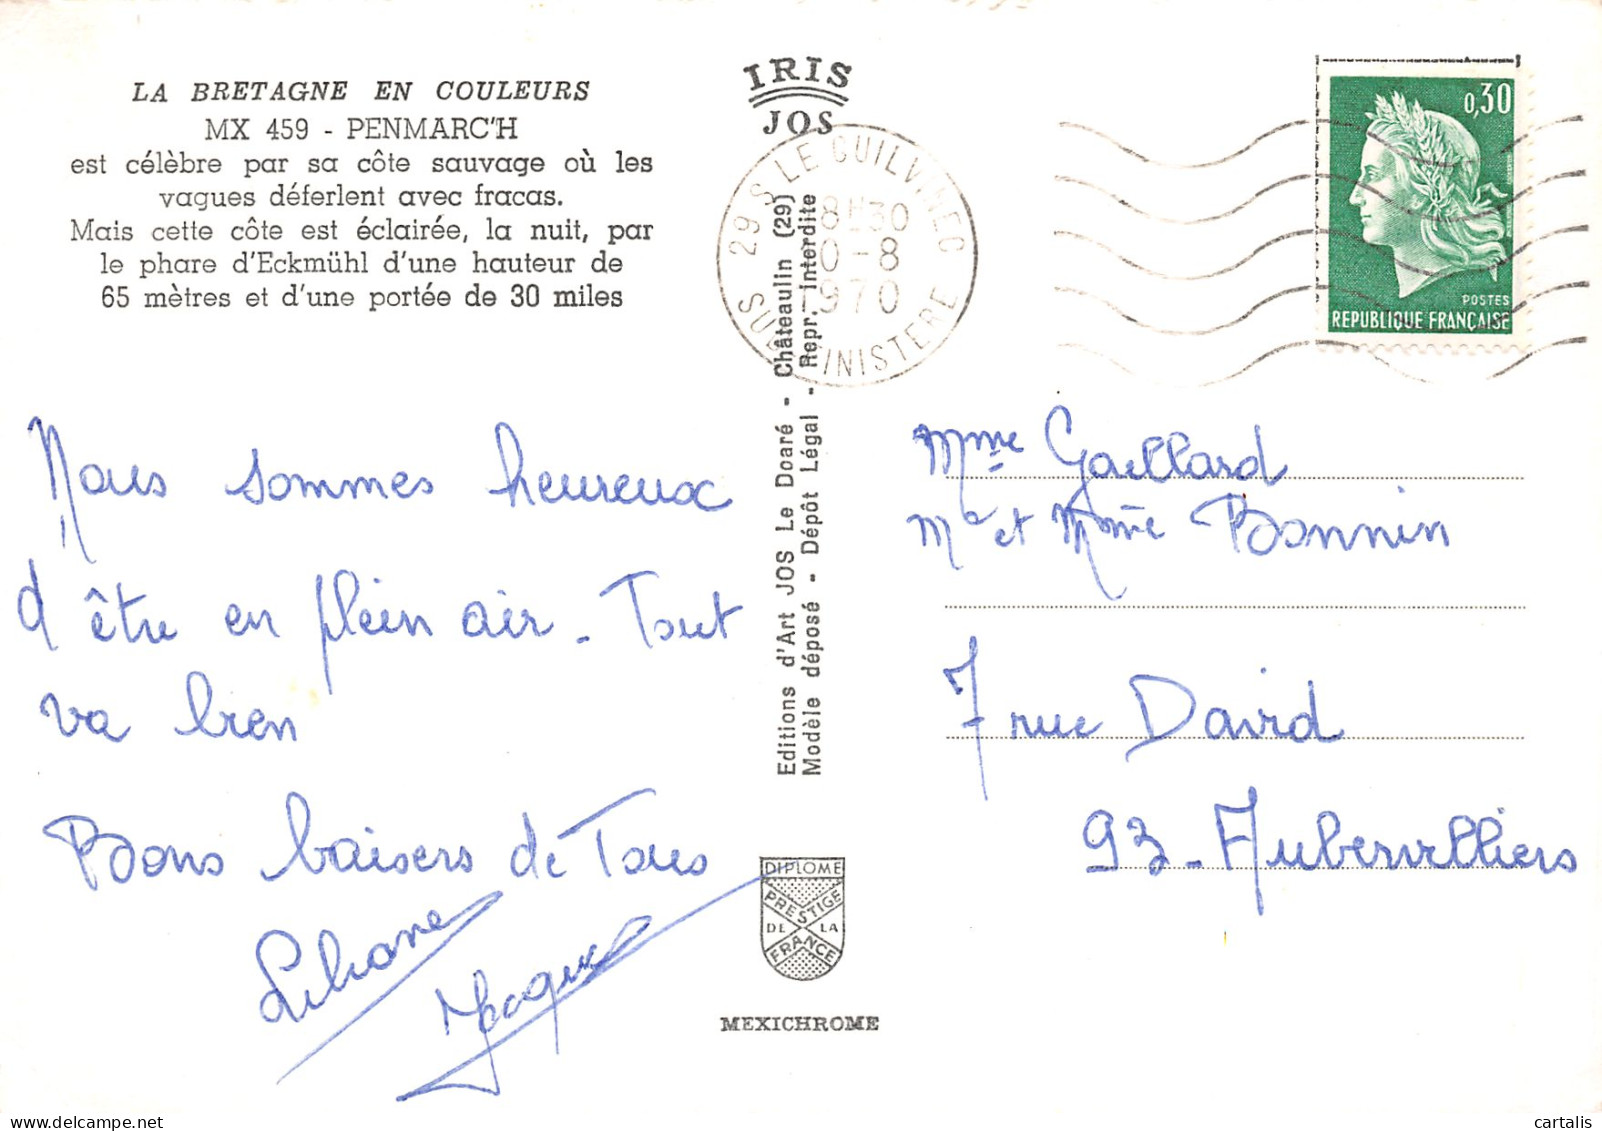 LA BRETAGNE EN COULEURS
MX 459 - PENMARC'H
est célèbre par sa côte sauvage où les
vagues déferlent avec fracas.
Mais cette côte est éclairée, la nuit, par
le phare d'Eckmühl d'une hauteur de
65 mètres et d'une portée de 30 miles
Nous sommes heureux
d'être en plein air. Tout
va bien
Bons baisers de Tous
Liliane
IRIS
JOS
29 S LE GUILVINEC
18H30
0-8
1970
SUD FINISTERE
Editions d'Art JOS Le Doaré - Châteaulin (29)
Modèle déposé - Dépôt Légal - Repr. interdite
DIPLOME
PRESTIGE
DE LA
FRANCE
MEXICHROME
0,30
POSTES
REPUBLIQUE FRANÇAISE
Mme Gaillard
Mr et Mme Bonnin
7 rue David
93 - Aubervilliers
delcampe.net
cartalis